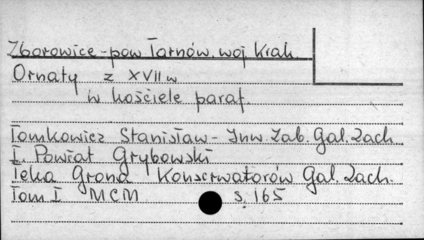 Zborowice - pow Tarnów. woj Krak.
Ornaty z XVII w
w kościele paraf.
Tomkowicz Stanisław - Inw. Zab. Gal. Zach.
I. Powiat Grybowski
Teka Grona Konserwatorów Gal. Zach.
Tom I MCM s. 165